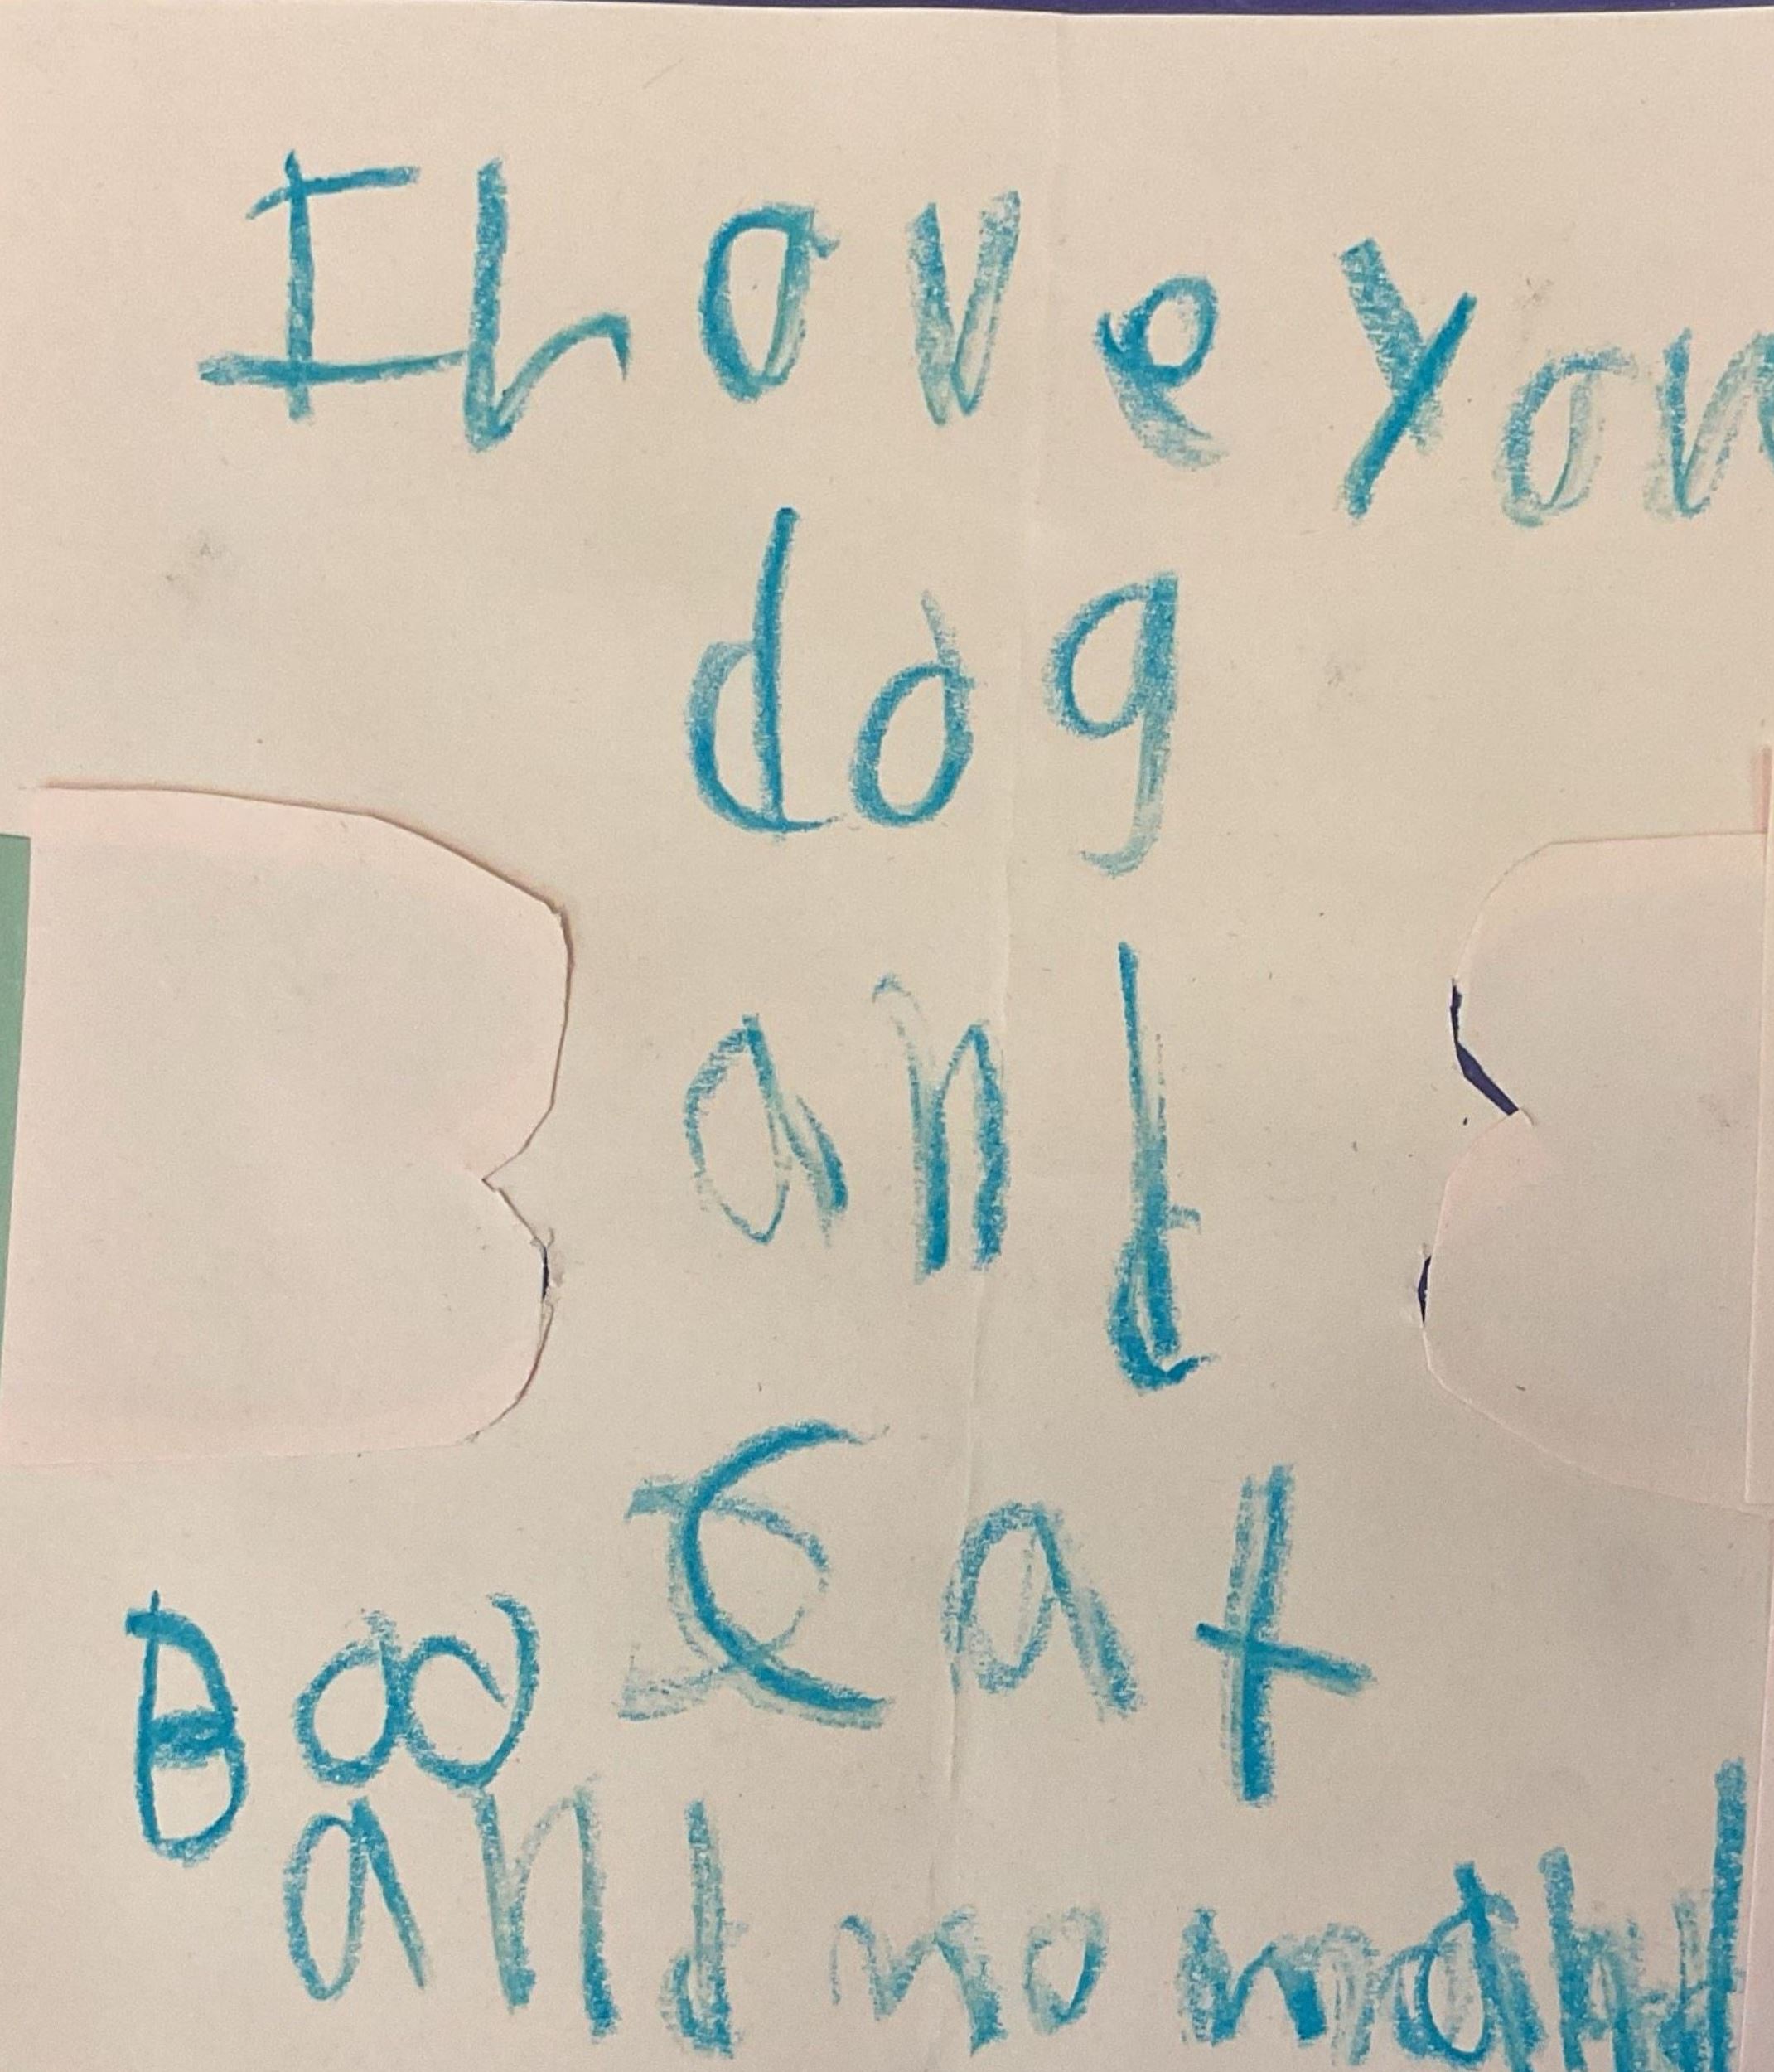 I Love you
dog
and
Cat
Boo
and mom and